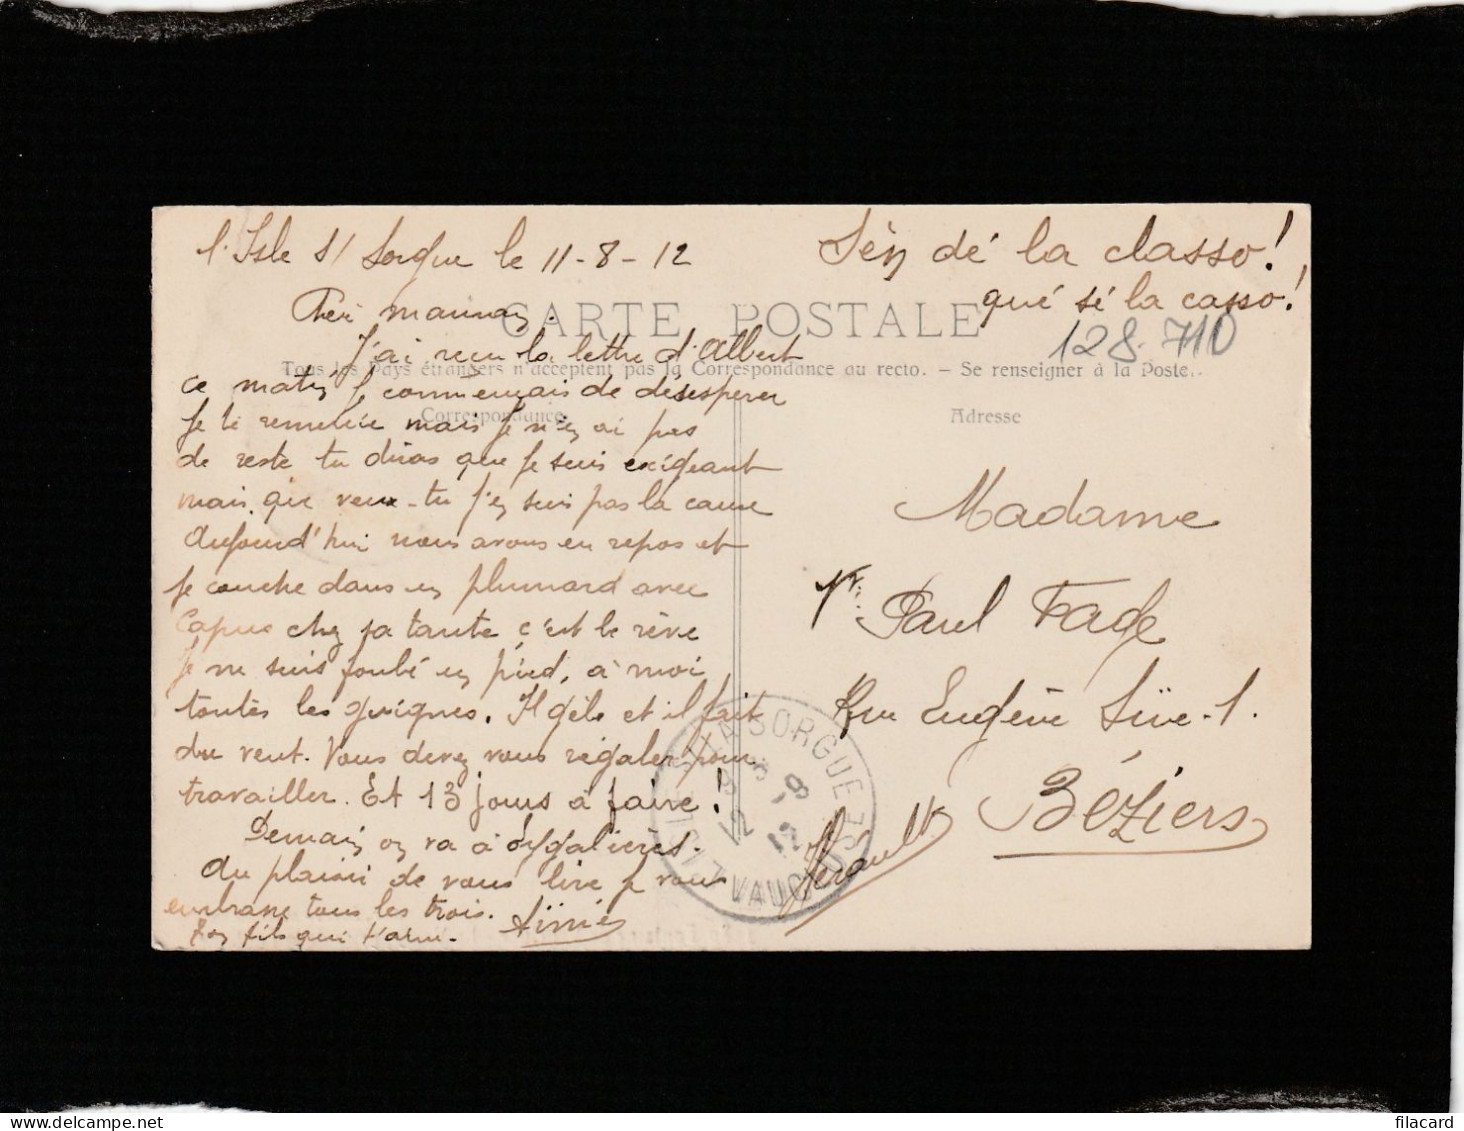 l'Isle s/ Sorgue le 11-8-12
Sèn dé la classo!
qué sé la casso!
128-710
CARTE POSTALE
Tous les Pays étrangers n'acceptent pas la Correspondance au recto. - Se renseigner à la Poste.
Correspondance
Adresse
Chèr maman.
J'ai reçu la lettre d'Albert
ce matin je commençais de désesperer
je te remercie mais je n'en ai pas
de reste tu diras que je suis exigeant
mais que veux-tu j'en suis pas la cause
Aujourd'hui nous avons eu repos et
je couche dans un plumard avec
Capus chez sa tante c'est le rêve
Je ne suis foulé un pied, à moi
toutes les guignes. Il gèle et il fait
du vent. Vous devez vous régaler pour
travailler. Et 13 jours à faire!
Demain on va à Eygalières.
Au plaisir de vous lire je vous
embrasse tous les trois. Aimé
Ton fils qui t'aime.
Madame
Vve Paul Fage
Rue Eugène Süe-1.
Béziers
Hérault
L'ISLE S/LA SORGUE
VAUCLUSE
filacard
www.delcampe.net